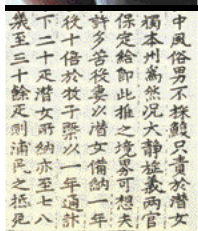 中風俗男不採鰒只責於潛女
獨本州爲然況大静旌義兩官
保定給卽此推之境界可想夫
許多苦役妻以潛女備納一年
役十倍於牧子槩以一年通計
下二十疋潛女所納亦至七八
幾至三十餘疋則浦民之抵死